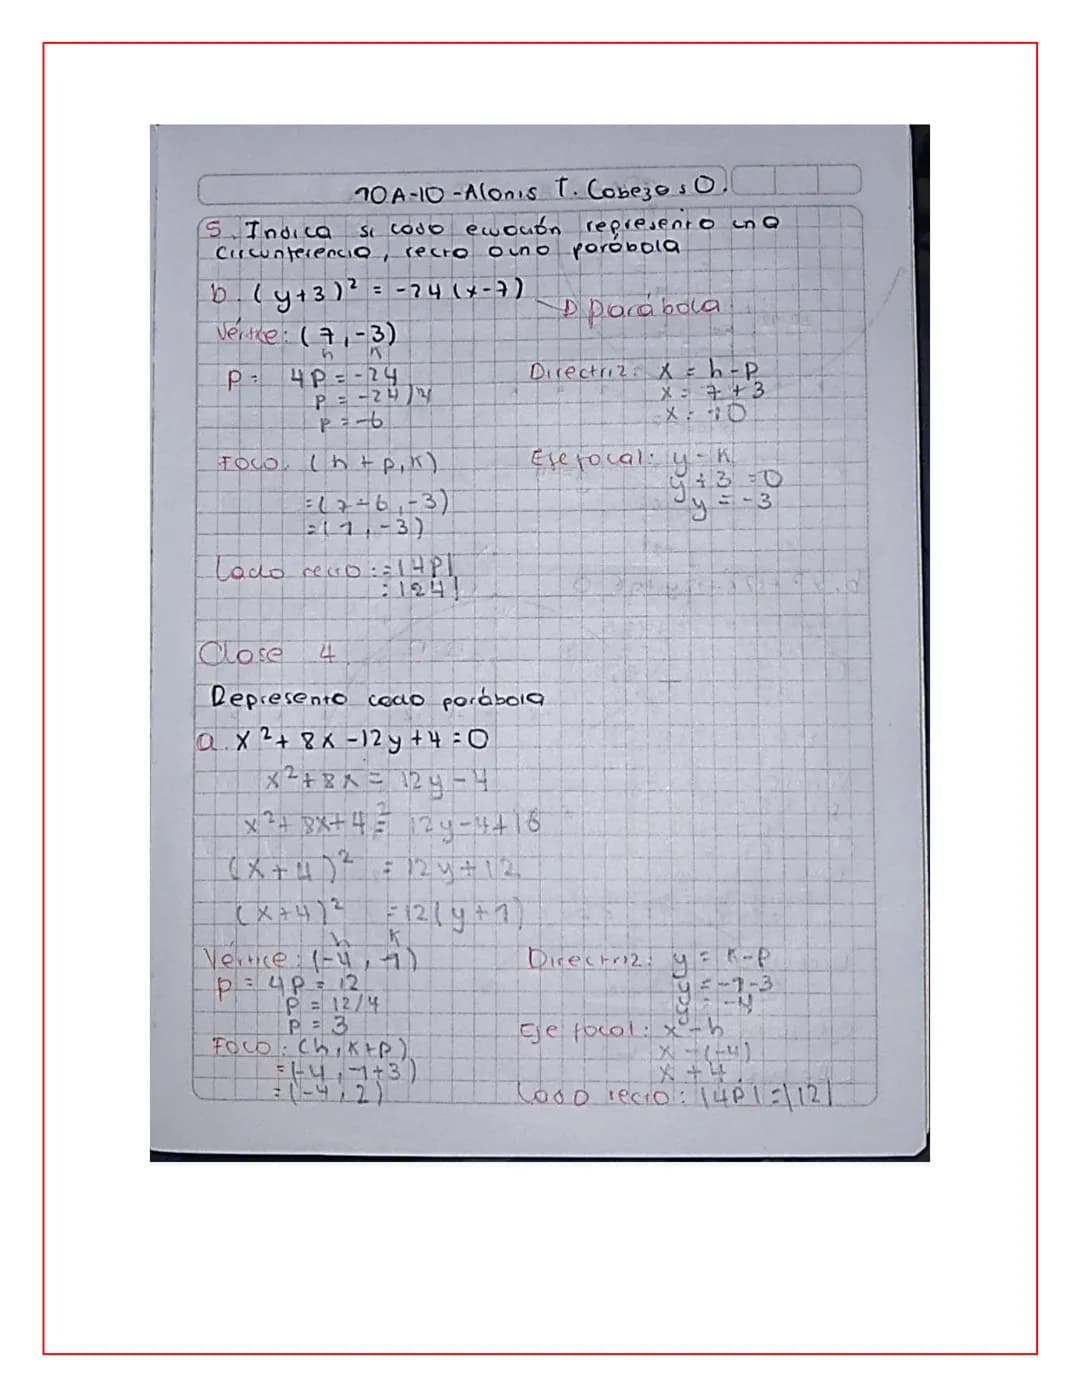 10A-10-Alanis T. Cabezas O.
5. Indica si cada ecuación representa una
circunferencia, recta o una parábola
b. (y+3)² = -24(x-7)
→ parábola
Vértice: (7,-3)
h k
P= 4P = -24
P = -24/4
P = -6
Directriz: x = h-P
x = 7+3
x = 10
Foco: (h+p,k)
=(7-6,-3)
=(1,-3)
Eje focal: y-k
y+3=0
y = -3
Lado recto:=|4P|
=|24|
Clase 4
Representa cada parábola
a. x²+8x-12y+4=0
x²+8x = 12y-4
x²+8x+4² = 12y-4+16
(x+4)² = 12y+12
(x+4)² =12(y+1)
h k
Vértice: (-4,-1)
P= 4P = 12
P = 12/4
P = 3
Foco: (h,k+p)
=(-4,-1+3)
=(-4,2)
Directriz: y = k-P
y=-1-3
y= -4
Eje focal: x-h
x-(-4)
x+4
Lado recto: |4P|=|12|